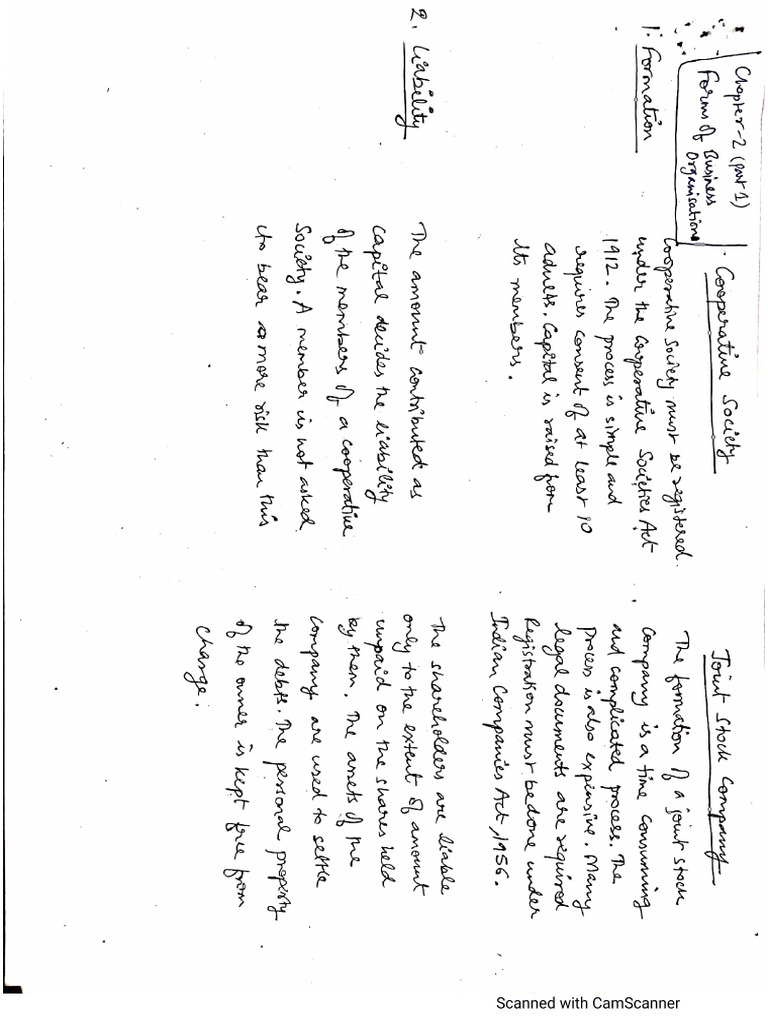 Chapter-2 (part 1)
Forms of Business
Organisations
Cooperative Society
Joint Stock Company
1. Formation
Cooperative Society must be registered
under the Cooperative Societies Act
1912. The process is simple and
requires consent of at least 10
adults. Capital is raised from
its members.
The formation of a joint stock
company is a time consuming
and complicated process. The
process is also expensive. Many
legal documents are required
Registration must be done under
Indian Companies Act, 1956.
2. Liability
The amount contributed as
capital decides the liability
of the members of a cooperative
Society. A member is not asked
to bear more risk than this
The shareholders are liable
only to the extent of amount
unpaid on the shares held
by them. The assets of the
company are used to settle
the debts. The personal property
of the owner is kept free from
charge.
Scanned with CamScanner